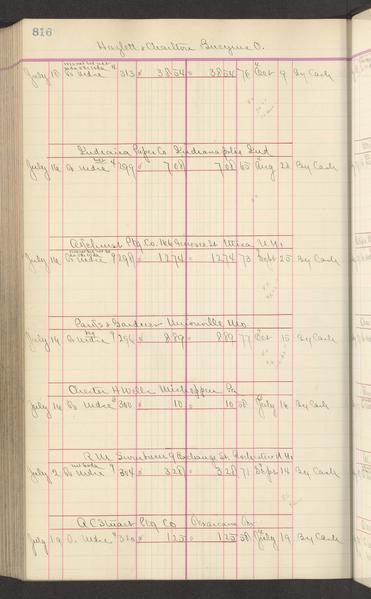 816
Hazlett & Charlton Bucyrus O.
July 10 To Mdse 313 3854 3854 76 Oct 9 By Cash
Indiana Paper Co Indianapolis Ind
July 16 To Mdse 299 708 708 65 Aug 23 By Cash
Ptg. Co. 166 Genesee St Utica N.Y.
July 16 To Mdse 298 1274 1274 73 Sept 25 By Cash
& Gardner Unionville Mo
July 14 To Mdse 296 889 889 77 Oct 15 By Cash
Chester H Wells Meshoppen Pa
July 16 To Mdse 300 10 10 58 July 16 By Cash
R. M. 9 Exchange St. Rochester N.Y.
July 2 To Mdse 304 328 328 71 Sept 14 By Cash
A C Stuart Ptg Co Texarcana
July 19 To Mdse 320 125 125 58 July 19 By Cash